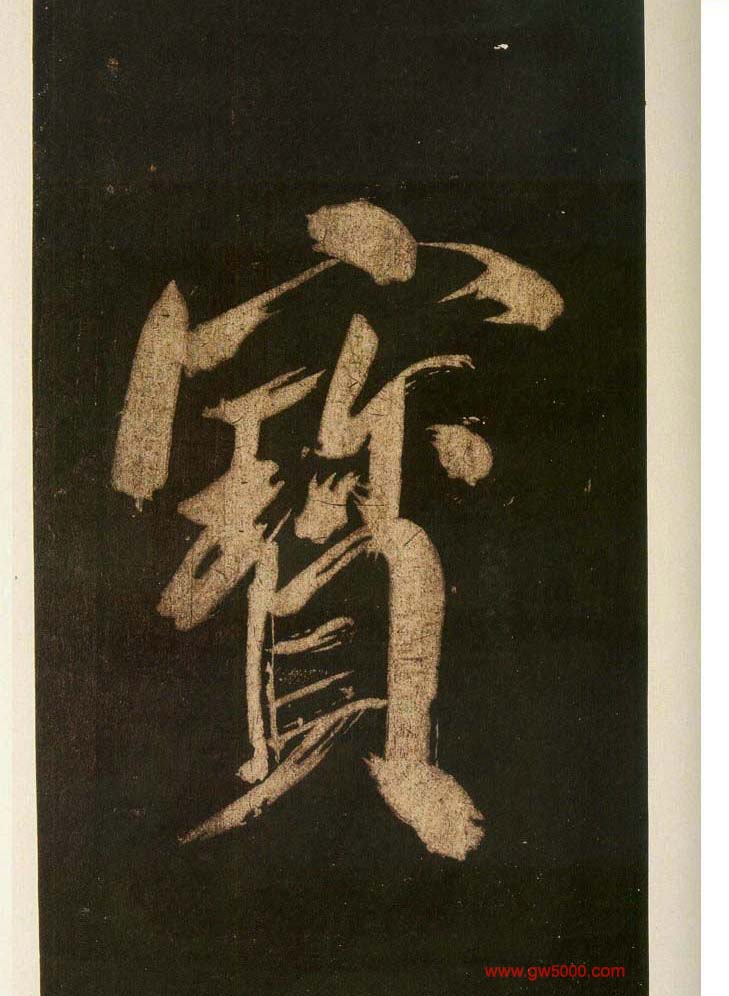 寳
www.gw5000.com